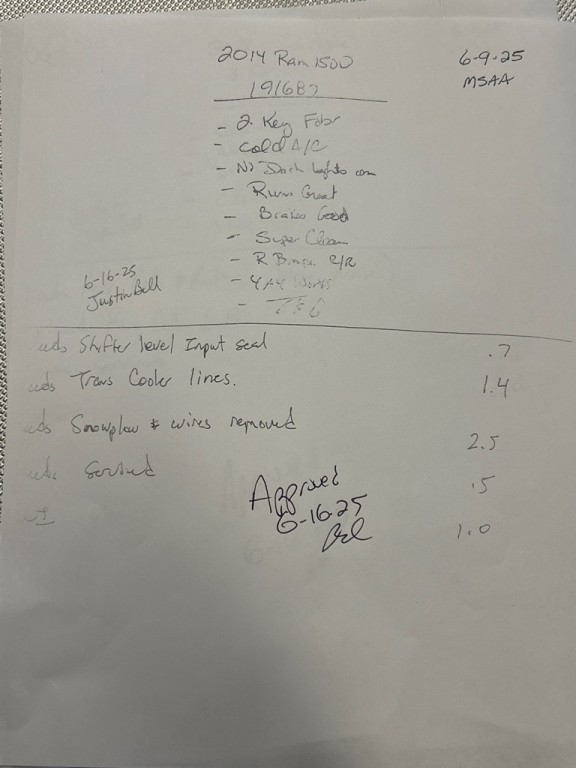 2014 Ram 1500
6-9-25
MSAA
191687
- 2 Key Fobs
- Cold A/C
- No Dash lights on
- Runs Great
- Brakes Good
- Super Clean
- R
- 4x4 Works
6-16-25
Justin Bell
Shifter level Input seal .7
Trans Cooler lines. 1.4
Snowplow & wires removed 2.5
Serviced .5
1.0
Approved
6-16-25